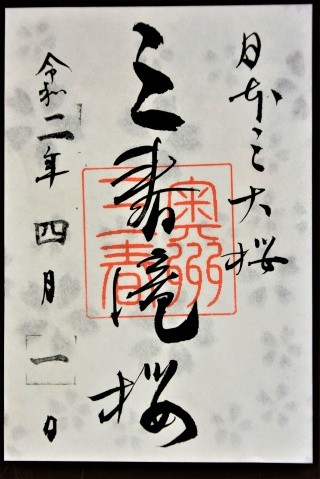 日本三大桜
三春滝桜
奥州
三春
令和二年四月一日